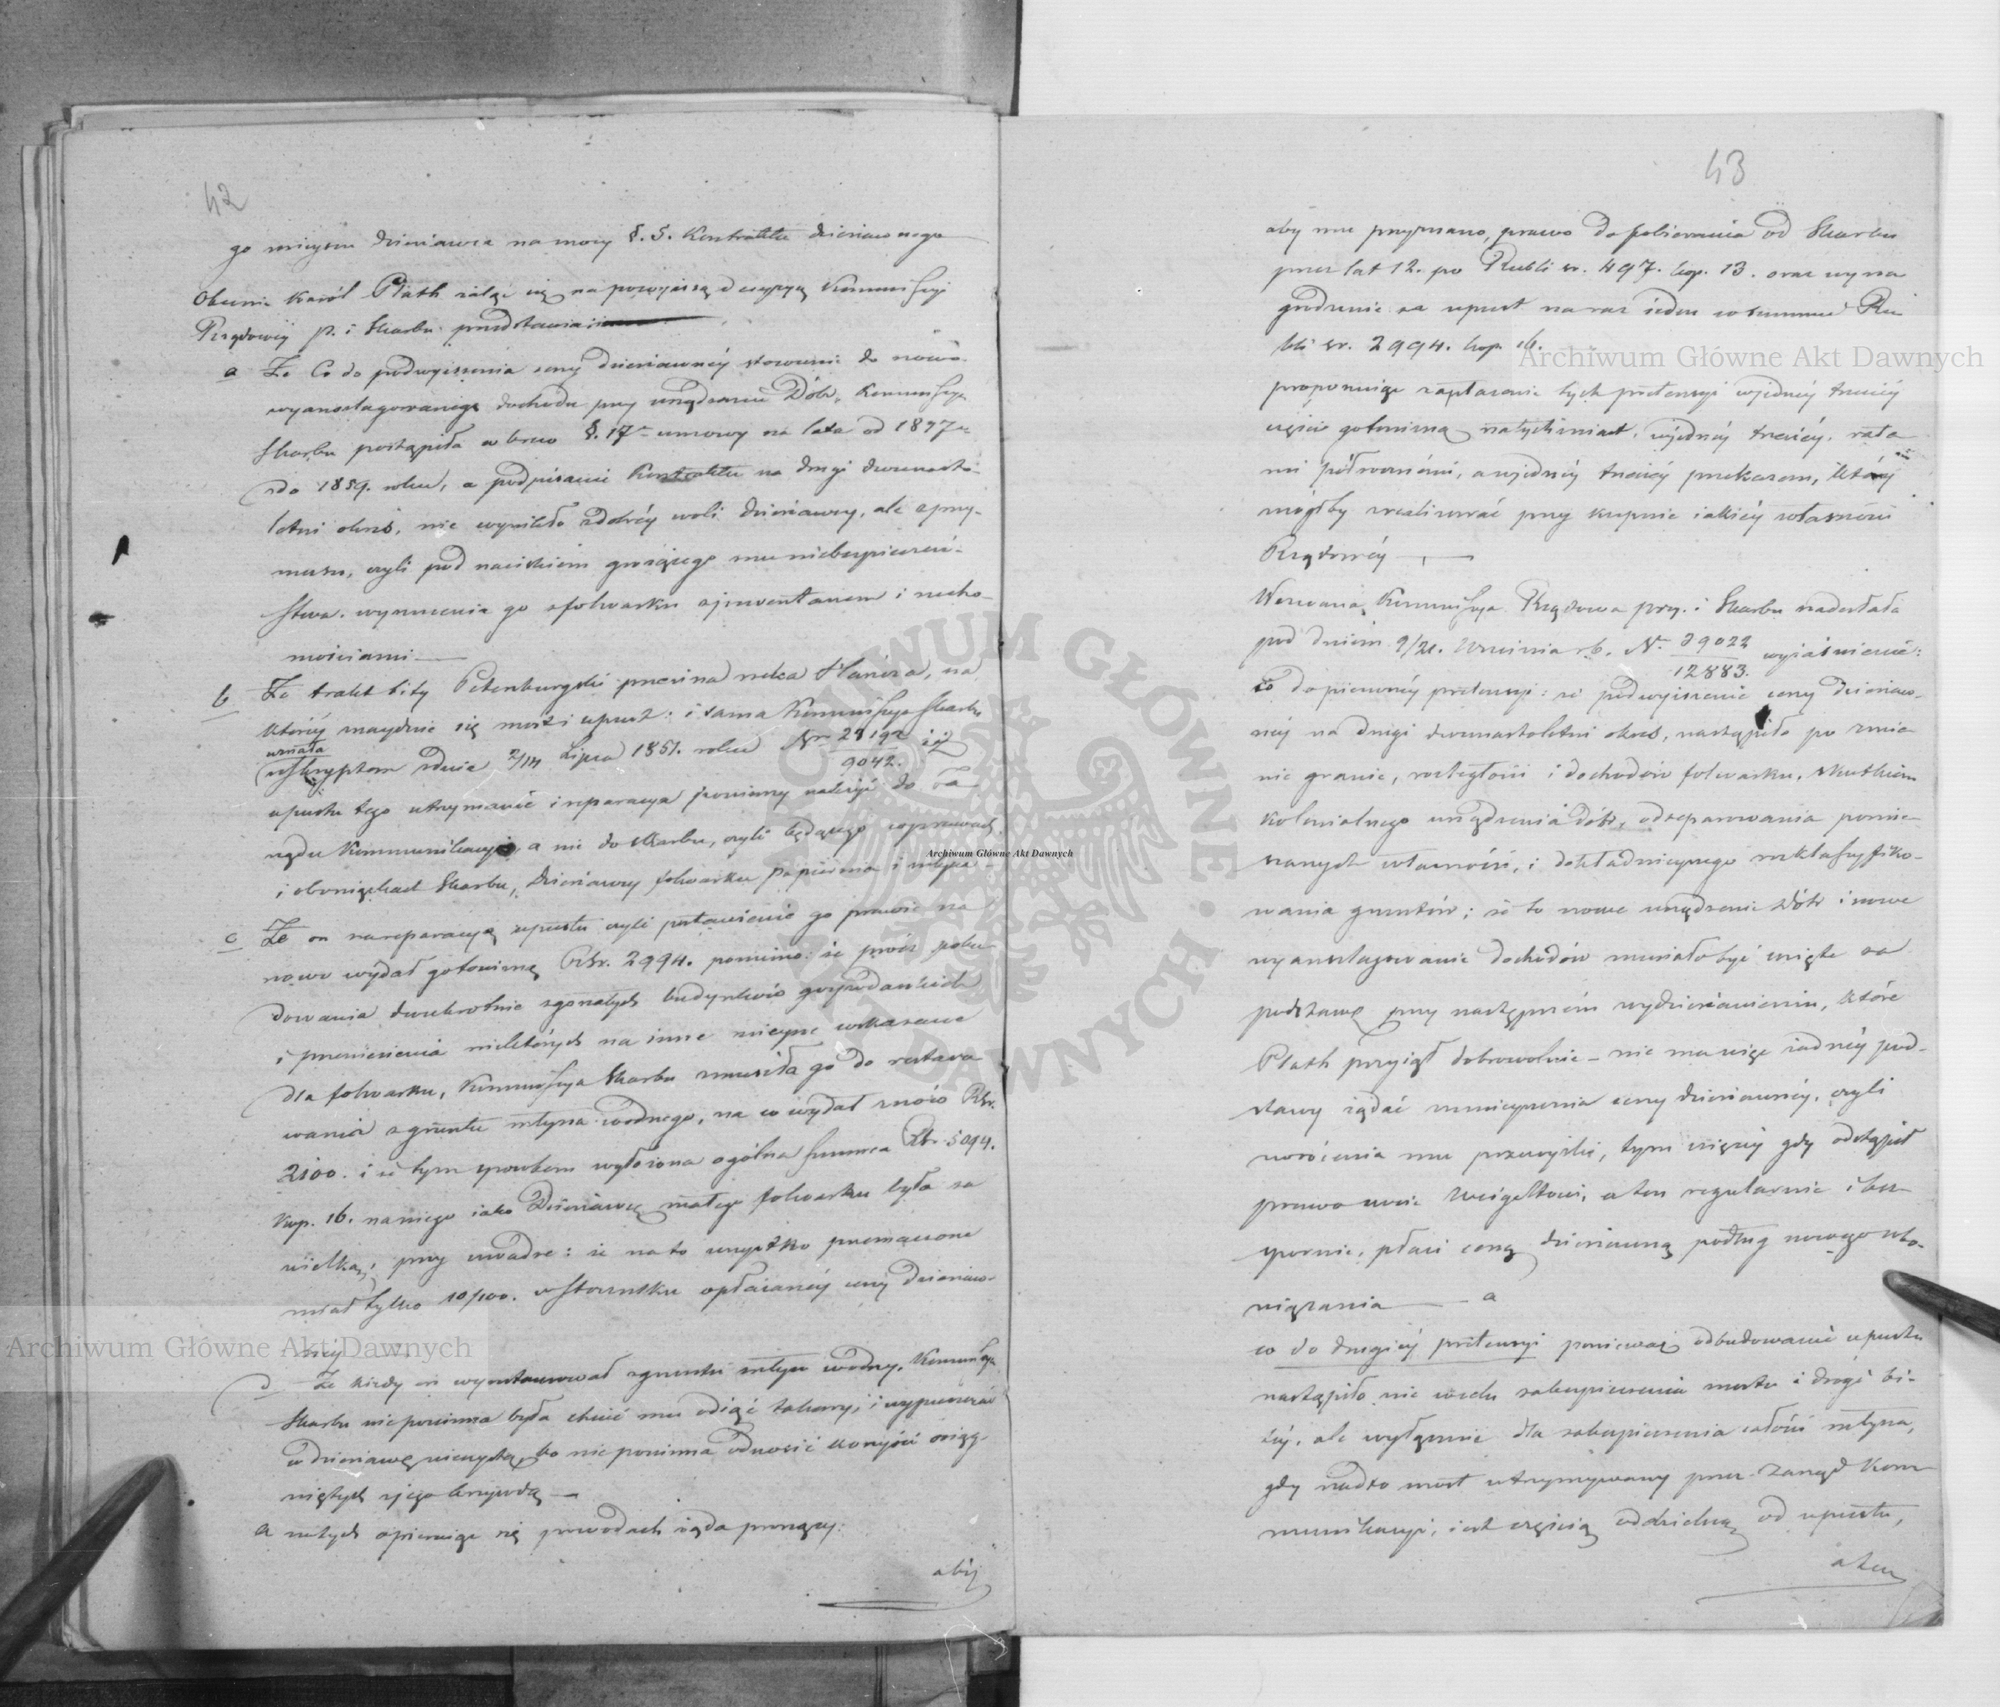 42
go miejscu dzierżawca na mocy §. 5. Kontraktu dzierżawnego
Obecnie Karól Plath żaląc się na powyższą decyzyą Kommissyi
Rządowéj P. i Skarbu przedstawia:
a Że Co do podwyższenia ceny dzierżawnéj stosownie do nowo
wyanszlagowanego dochodu przy urządzeniu Dóbr, Kommissya
Skarbu postąpiła wbrew §. 17 umowy na lata od 1847
do 1859. roku, a podpisanie Kontraktu na drugi dwunasto-
letni okres, nie wynikło z dobréj woli dzierżawcy, ale z przy-
musu, czyli pod naciskiem grożącego mu niebezpieczeń-
stwa wyrzucenia go z folwarku z inwentarzem i rucho-
mościami
b Że trakt bity Petersburgski przecina rzeka Hańcza, na
któréj znajduje się most i upust: i sama Kommissya Skarbu
uznała
reskryptem z dnia 2/14 Lipca 1851. roku Nr 28192/9042. iż
upustu tego utrzymanie i reparacya powinny należeć do Za-
rządu Kommunikacyi, a nie do Skarbu, czyli będącego w prawach
i obowiązkach Skarbu, Dzierżawcy folwarku papiernia i młyna
c Że on na reparacyą upustu czyli postawienie go prawie na
nowo wydał gotowizną Rsr. 2994. pomimo: że prócz pobu-
dowania dwukrotnie zgorzałych budynków gospodarskich
i przeniesienia niektórych na inne miejsce wskazane
dla folwarku, Kommissya Skarbu zmusiła go do restauro
wania z gruntu młyna wodnego, na co wydał znów Rsr.
2100. i że tym sposobem wyłożona ogólna summa Rsr. 5094.
kop. 16. na niego jako Dzierżawcę małego folwarku była za
wielką; przy uwadze: że na to wszystko przeznaczone
miał tylko 10/100. w stosunku opłacanéj ceny dzierżaw-
néj
d Że kiedy on wyrestaurował z gruntu młyn wodny, Kommissya
Skarbu nie powinna była chcieć mu odjąć takowy, i wypuszczać
w dzierżawę wieczystą, bo nie powinna odnosić korzyści osiąg-
niętych z jego krzywdą
A na tych opierając się powodach żąda prosząc:
aby
43
aby mu przyznano, prawo do pobierania od Skarbu
przez lat 12. po Rubli sr. 497. kop. 13. oraz wyna
grodzenie za upust na raz jeden w summie Ru
bli sr. 2994. kop. 16.
proponując zapłacenie tych pretensyi w jednéj trzeciéj
części gotowizną natychmiast, w jednéj trzeciéj rata
mi półrocznémi, a w jednéj trzeciéj przekazem, który
mógłby zrealizować przy kupnie jakiéj własności
Rządowéj
Wezwana Kommissya Rządowa Przy. i Skarbu nadesłała
pod dniem 9/21. Września r.b. Nr 39022/12883. wyjaśnienie:
co do pierwszéj pretensyi: że podwyższenie ceny dzierżaw-
néj na drugi dwunastoletni okres, nastąpiło po zmia
nie granic, rozległości i dochodów folwarku, skutkiem
kolonialnego urządzenia dóbr, odseparowania pomie-
szanych własności, i dokładniejszego rozklassyfiko-
wania gruntów; że to nowe urządzenie Dóbr i nowe
wyanszlagowanie dochodów musiało być wzięte za
podstawę przy następném wydzierżawieniu, które
Plath przyjął dobrowolnie – nie ma więc żadnéj pod-
stawy żądać zmniejszenia ceny dzierżawnéj, czyli
zwrócenia mu przewyżki, tym więcéj gdy odstąpił
prawa swoje Weigeltowi, a ten regularnie i bez
spornie, płaci ceną dzierżawną podług nowego obo-
wiązania a
co do drugiéj pretensyi ponieważ odbudowanie upustu
nastąpiło nie w celu zabezpieczenia mostu i drogi bi-
téj, ale wyłącznie dla zabezpieczenia całości młyna,
gdy nadto most utrzymywany przez Zarząd Kom
munikacyi, jest częścią oddzielną od upustu,
a ten
Archiwum Główne Akt Dawnych
Archiwum Główne Akt Dawnych
Archiwum Główne Akt Dawnych
ARCHIWUM GŁÓWNE AKT DAWNYCH